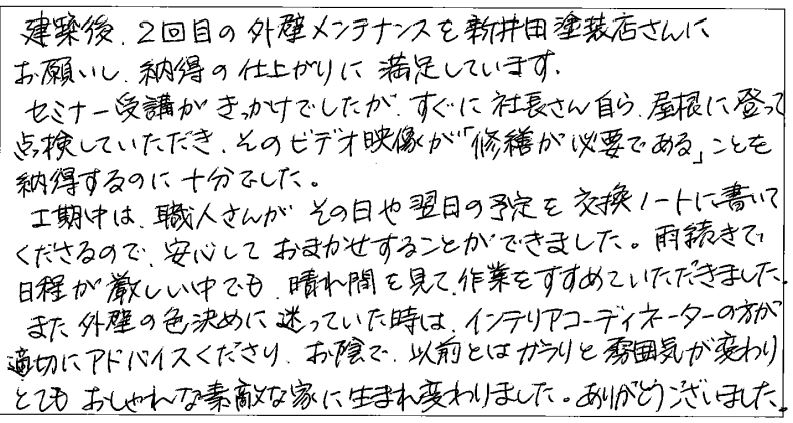 建築後、2回目の外壁メンテナンスを新井田塗装店さんに
お願いし、納得の仕上がりに満足しています。
セミナー受講がきっかけでしたが、すぐに社長さん自ら、屋根に登って
点検していただき、そのビデオ映像が「修繕が必要である」ことを
納得するのに十分でした。
工期中は、職人さんがその日や翌日の予定を交換ノートに書いて
くださるので、安心しておまかせすることができました。雨続きで
日程が厳しい中でも、晴れ間を見て、作業をすすめていただきました。
また外壁の色決めに迷っていた時は、インテリアコーディネーターの方が
適切にアドバイスくださり、お陰で、以前とはガラリと雰囲気が変わり
とてもおしゃれな素敵な家に生まれ変わりました。ありがとうございました。